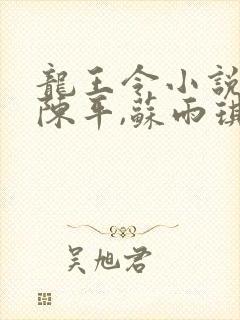 龍王令小說
陳平,蘇雨琪
吴旭君